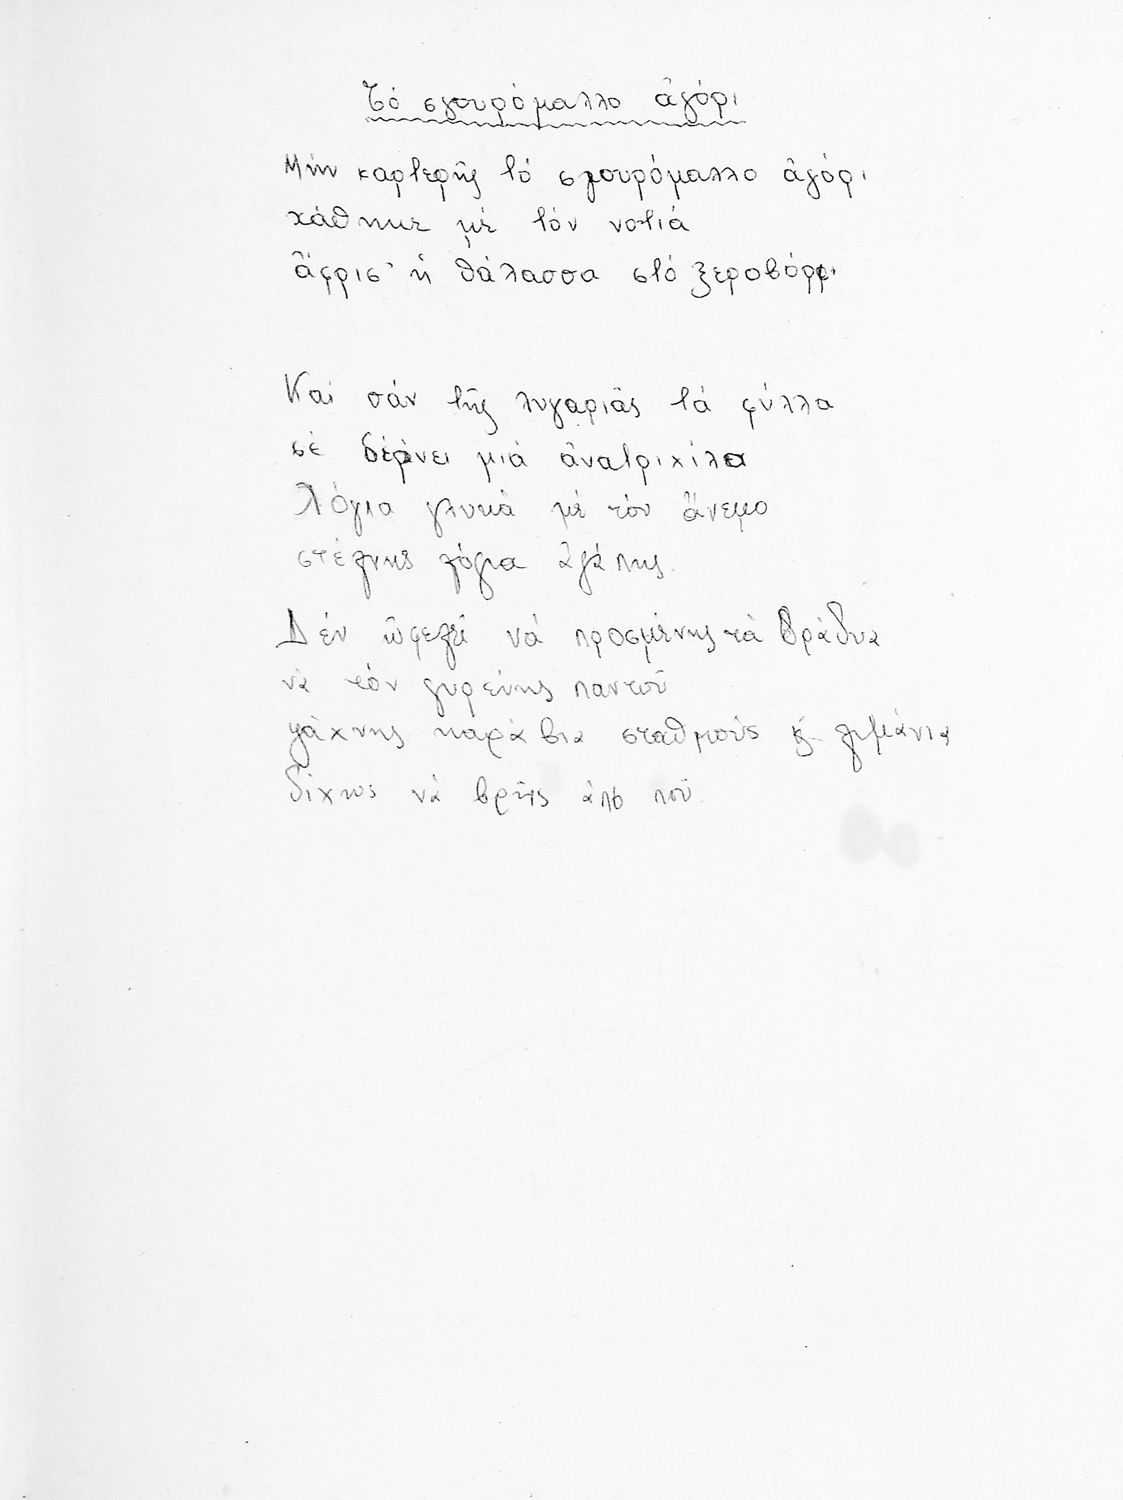 Τό σγουρόμαλλο ἀγόρι
Μήν καρτερῆς τό σγουρόμαλλο ἀγόρι
χάθηκε μέ τόν νοτιά
ἄφρισ' ἡ θάλασσα στό ξεροβόρρι
Καί σάν τῆς λυγαριᾶς τά φύλλα
σέ δέρνει μιά ἀνατριχίλα
Λόγια γλυκά μέ τόν ἄνεμο
στέλνης λόγια ἀγάπης.
Δέν ὠφελεῖ νά προσμένης τά βράδυα
νά τόν γυρεύης παντοῦ
ψάχνης καράβια σταθμούς κ λιμάνια
δίχως νά βρῆς ἀπό ποῦ.